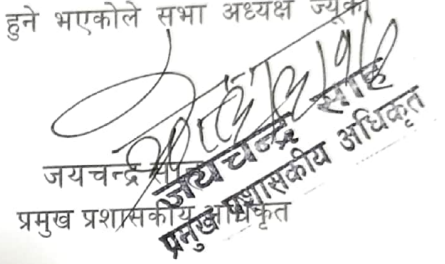 हुने भएकोले सभा अध्यक्ष ज्यूको
जयचन्द्र
प्रमुख प्रशासकीय अधिकृत
जयचन्द्र साह
प्रमुख प्रशासकीय अधिकृत